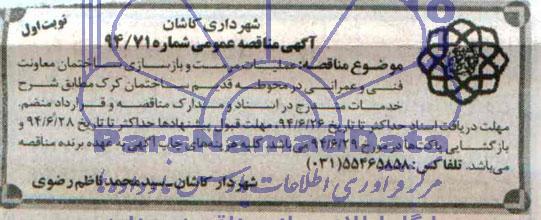 شهرداری کاشان
نوبت اول
آگهی مناقصه عمومی شماره ۹۴/۷۱
موضوع مناقصه: عملیات مرمت و بازسازی ساختمان معاونت
فنی و عمرانی در محوطه قدیم ساختمان کرک مطابق شرح
خدمات مندرج در اسناد و مدارک مناقصه و قرارداد منضم.
مهلت دریافت اسناد حداکثر تا تاریخ ۹۴/۶/۲۶، مهلت قبول پیشنهادها حداکثر تا تاریخ ۹۴/۶/۲۸ و
بازگشایی پاکت‌ها در مورخ ۹۴/۶/۲۹ می‌باشد. کلیه هزینه‌های چاپ آگهی به عهده برنده مناقصه
می‌باشد. تلفاکس: ۵۵۴۶۵۸۵۸ (۰۳۱)
شهردار کاشان - سیدمحمدناظم رضوی
ParsNamadData
مرکز فرآوری اطلاعات پارس نماد داده ها